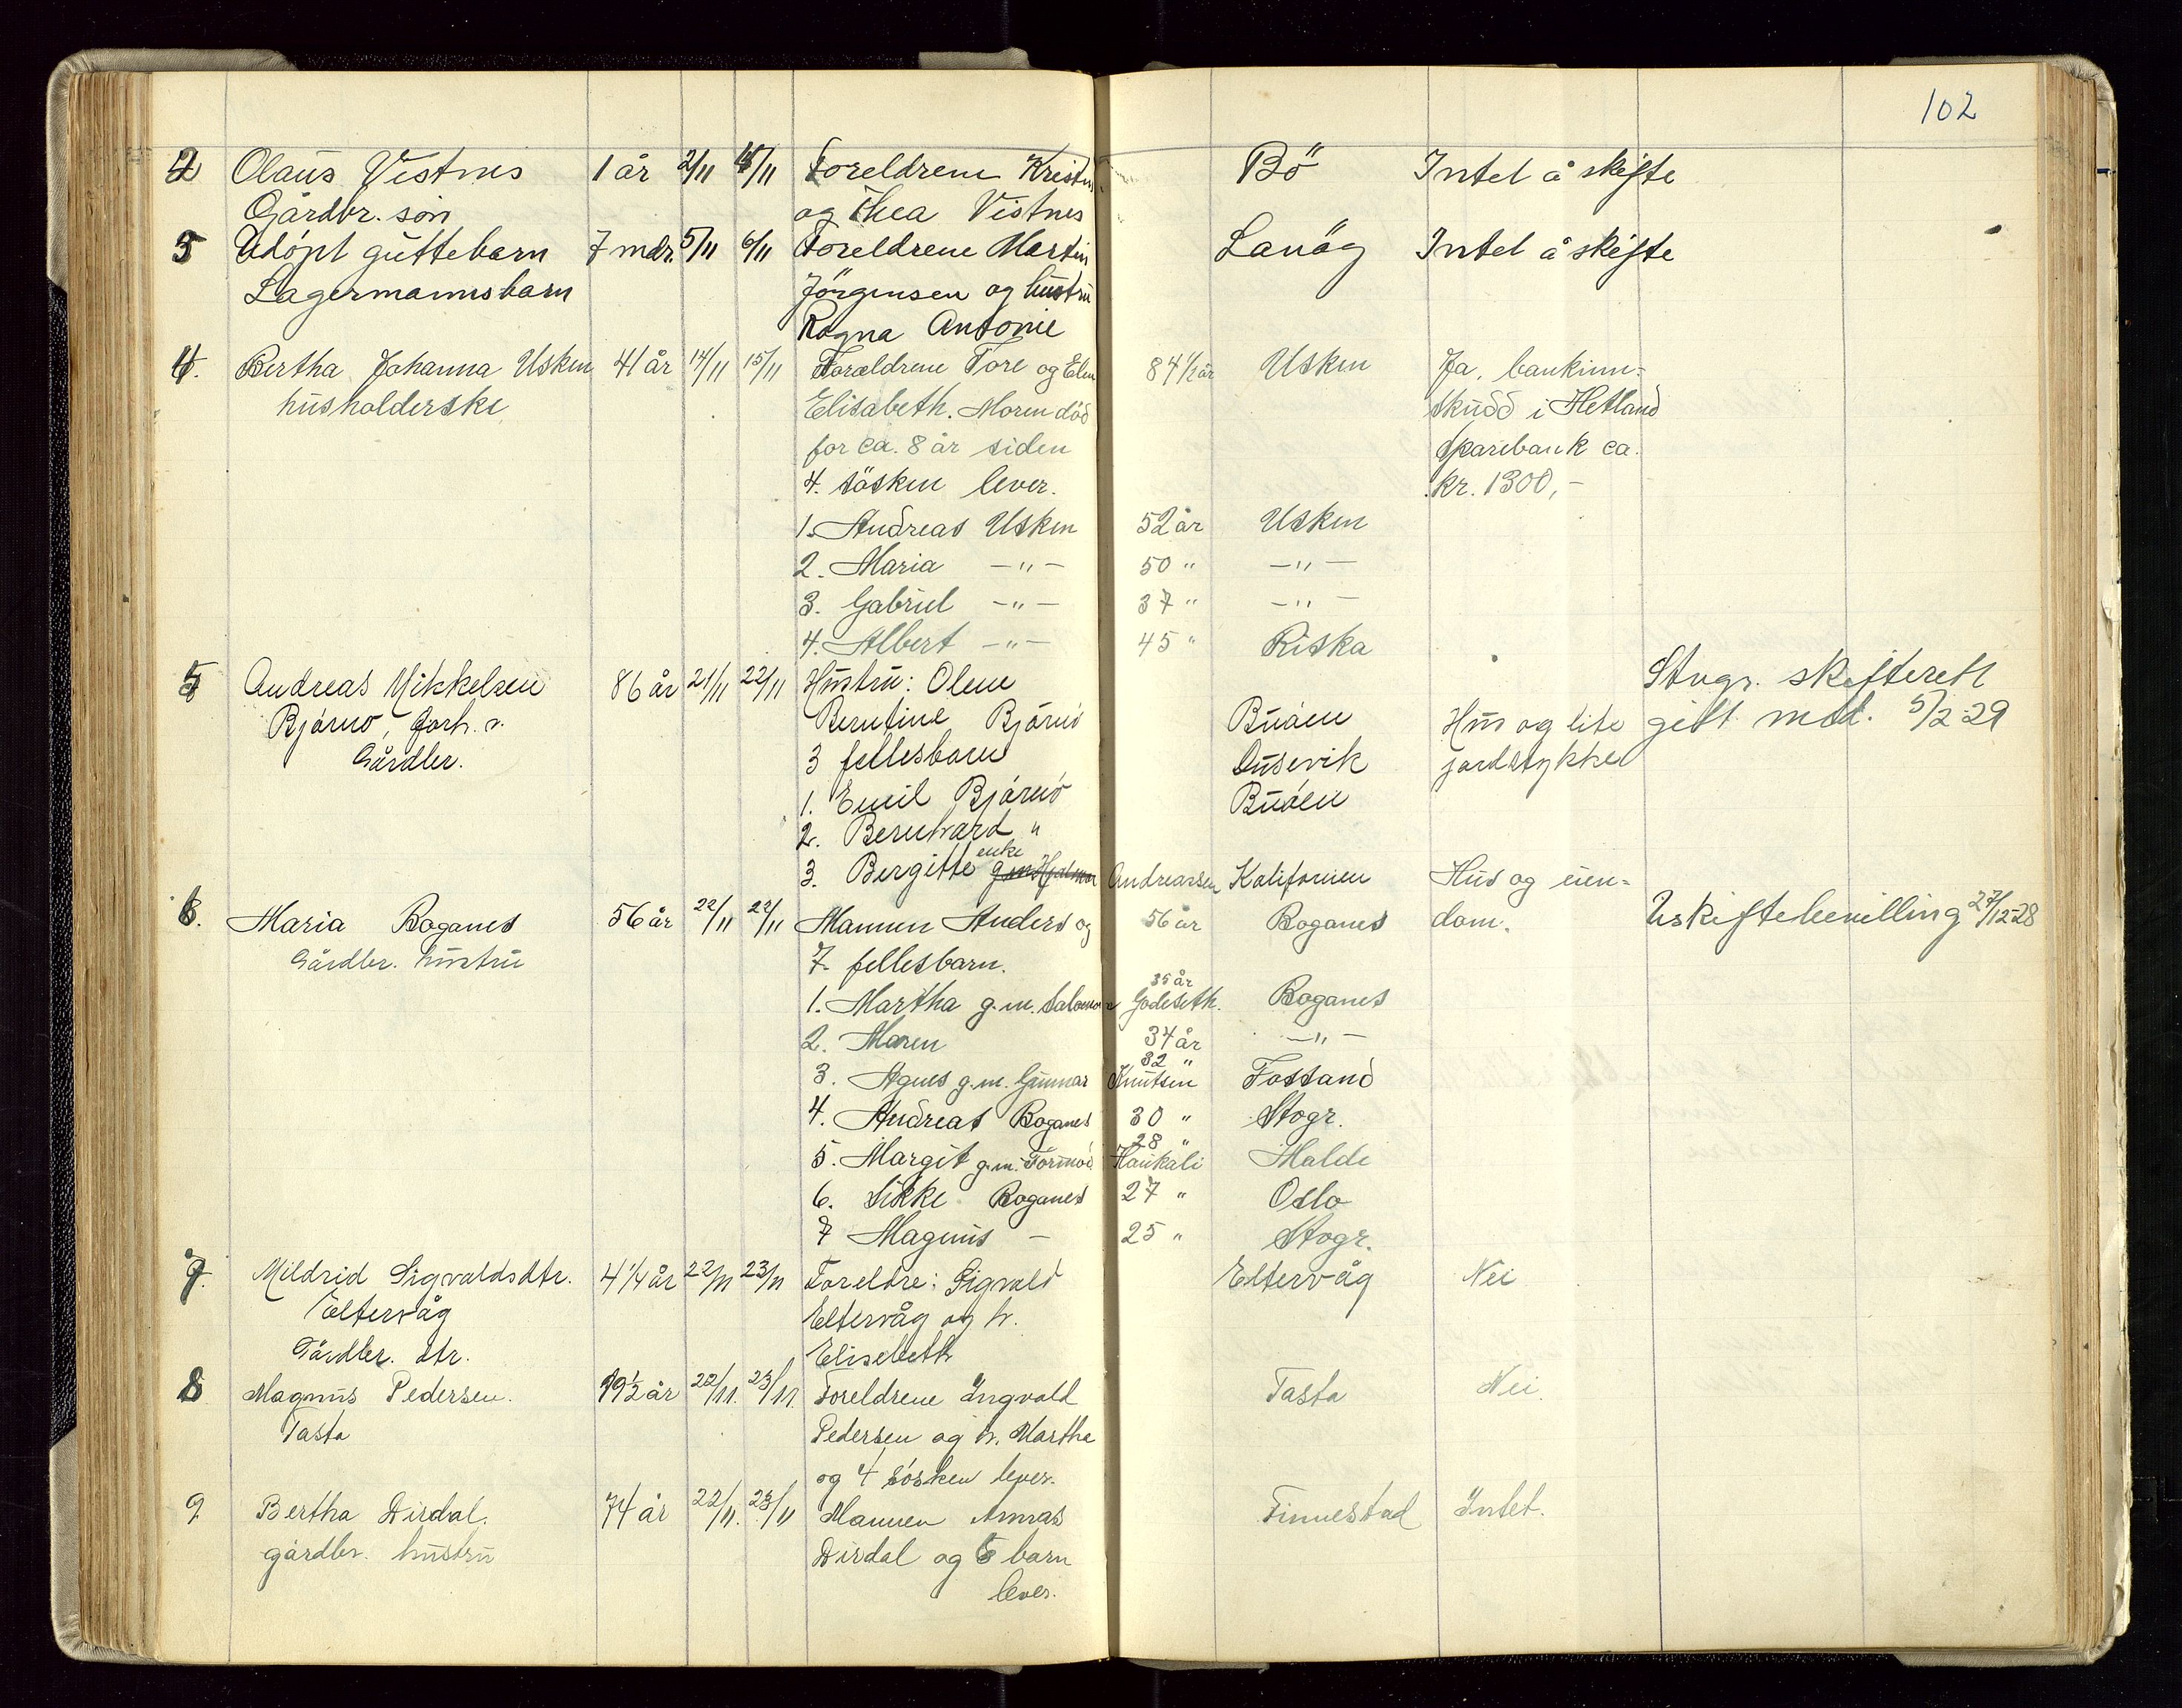 102
2 Olaus Vistnes 1 år 2/11 4/11 Foreldrene Kristen Bö Intet å skifte
Gårdbr. sön og Thea Vistnes
3 Udöpt guttebarn 7 mdr. 5/11 6/11 Foreldrene Martin Lanög Intet å skifte
Lagermannsbarn Jörgensen og hustru
Ragna Antonie
4. Bertha Johanna Usken 41 år 14/11 15/11 Foreldrene Tore og Elen 84 1/2 år Usken Ja, bankinn=
husholderske Elisabeth. Moren död skudd i Hetland
for ca. 8 år siden Sparebank ca.
4. sösken lever. kr. 1300,-
1. Andreas Usken 52 år Usken
2. Maria -"- 50 " -"-
3. Gabriel -"- 37 " -"-
4. Albert -"- 45 " Riska
5 Andreas Mikkelsen 86 år 21/11 22/11 Hustru: Olene Stvgr. skifterett
Bjørnø, forh. v. Berntine Bjørnø Buøen Hus og lite gitt med. 5/2-29
Gårdbr. 3 fellesbarn Dusevik jordstykke
1. Emil Bjørnø Buøen
2. Bernhard "
3. Bergitte enke g.m. Hjalmar Andreassen Kalifornien Hus og eien=
6. Maria Boganes 56 år 22/11 22/11 Mannen Anders og 56 år Boganes dom. Uskiftebevilling 27/12-28
Gårdbr. hustru 7 fellesbarn.
1. Martha g.m. Salomon Godeseth. 35 år Boganes
2. Maren 34 år -"-
3. Agnes g.m. Gunnar Knutsen 32 " Fossand
4. Andreas Boganes 30 " Stvgr.
5. Margit g.m. Tormod Haukali 28 " Malde
6. Sikke Boganes 27 " Oslo
7 Magnus - 25 " Stvgr.
7. Mildrid Sigvaldsdtr. 4 1/4 år 22/11 23/11 Foreldre: Sigvald Eltervåg Nei
Eltervåg Eltervåg og h.
Gårdbr. dtr. Elisebeth
8 Magnus Pedersen. 19 1/2 år 22/11. 23/11. Foreldrene Ingvald Tasta Nei.
Tasta Pedersen og h. Martha
og 4 søsken lever.
9. Bertha Dirdal. 74 år 22/11. 23/11 Mannen Finnestad Intet.
gårdbr. hustru Dirdal og 5 barn
lever.